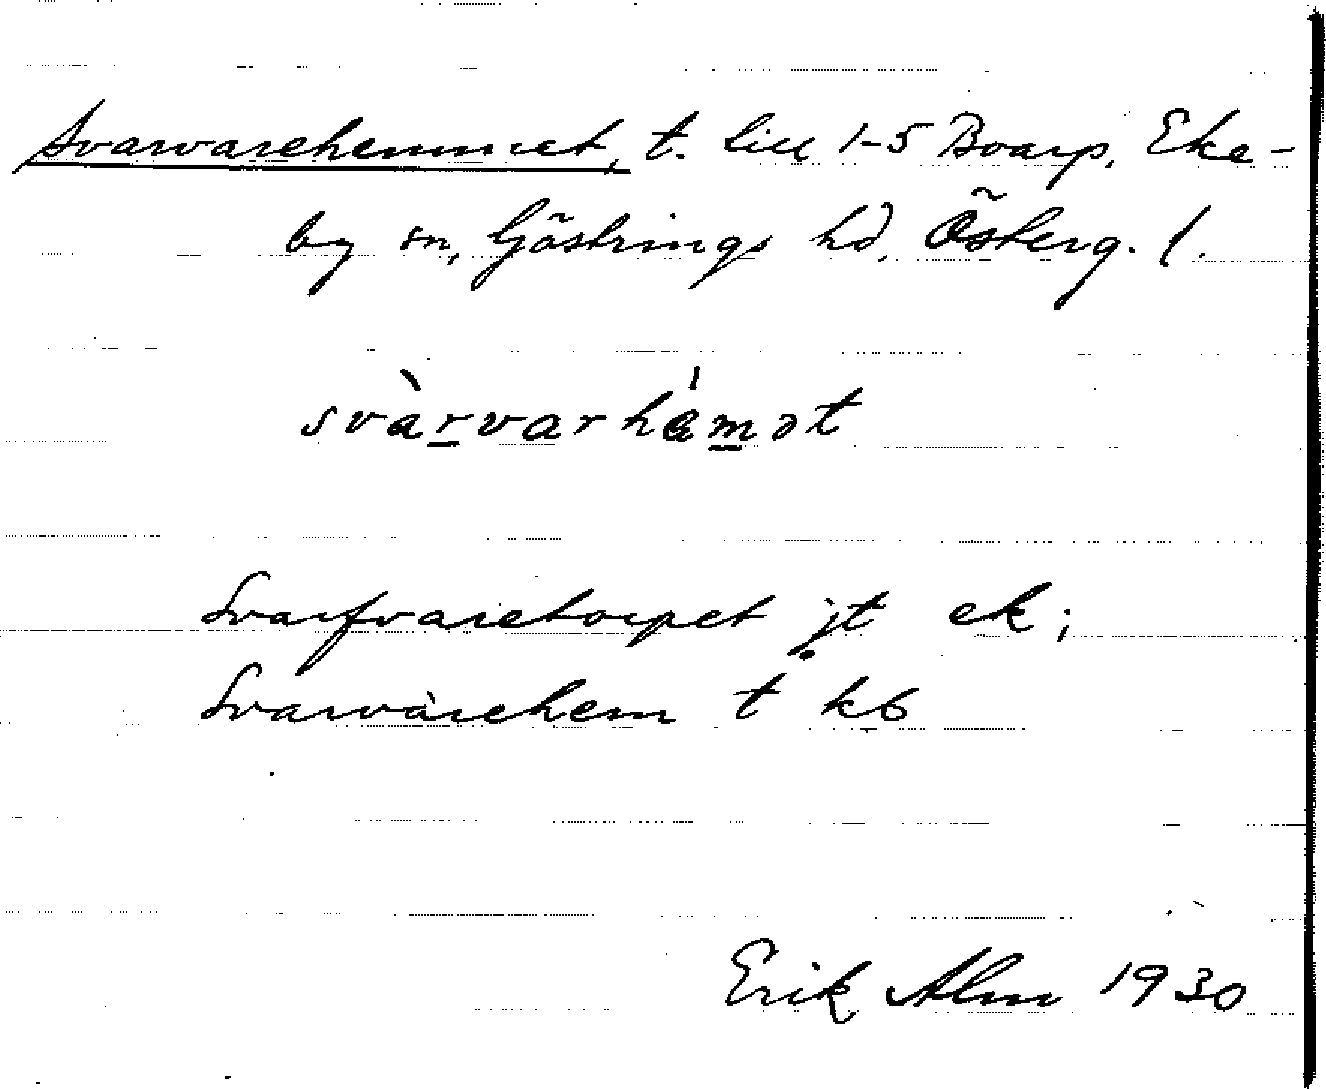 Svarvarehemmet, t. till 1-5 Boarp, Eke-
by sn, Göstrings hd, Österg. l.
svàrvarhémət
Svarfvaretorpet jt ek;
Svarvarehem t kb
Erik Alm 1930